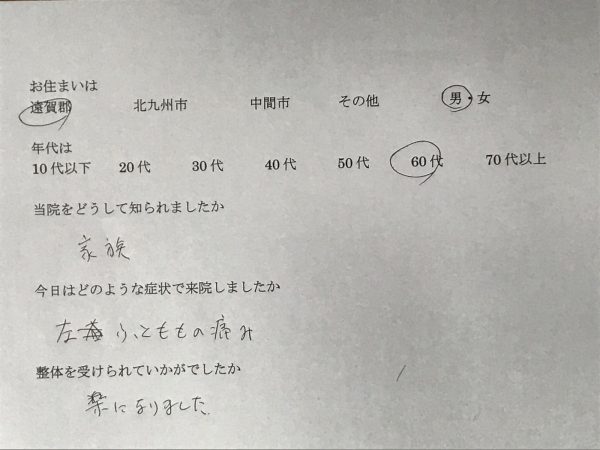 お住まいは
遠賀郡 北九州市 中間市 その他 男・女
年代は
10代以下 20代 30代 40代 50代 60代 70代以上
当院をどうして知られましたか
家族
今日はどのような症状で来院しましたか
左ふとももの痛み
整体を受けられていかがでしたか
楽になりました